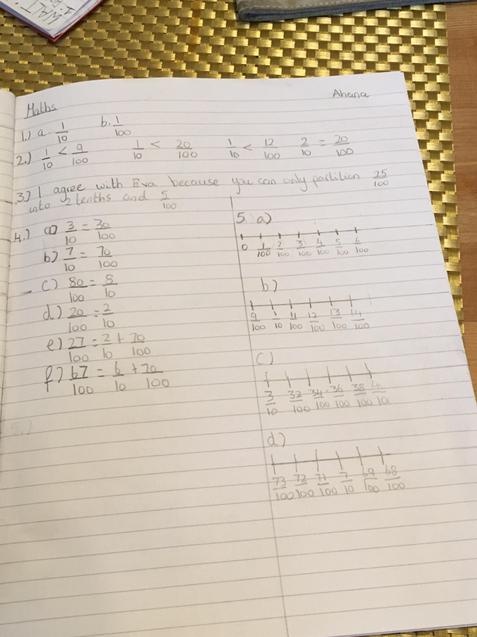 Maths
Ahana
1.) a. 1/10 b. 1/100
2.) 1/10 < 9/100 1/10 < 20/100 1/10 < 12/100 2/10 = 20/100
3.) I agree with Eva because you can only partition 25/100
into 2 tenths and 5/100
4.) a) 3/10 = 30/100
b) 7/10 = 70/100
c) 80/100 = 8/10
d.) 20/100 = 2/10
e) 27/100 = 2/10 + 70/100
f) 67/100 = 6/10 + 70/100
5. a)
0 1/100 2/100 3/100 4/100 5/100 6/100
b)
9/100 1/10 11/100 12/100 13/100 14/100
c)
3/10 32/100 34/100 36/100 38/100
d)
73/100 72/100 71/100 7/10 69/100 68/100